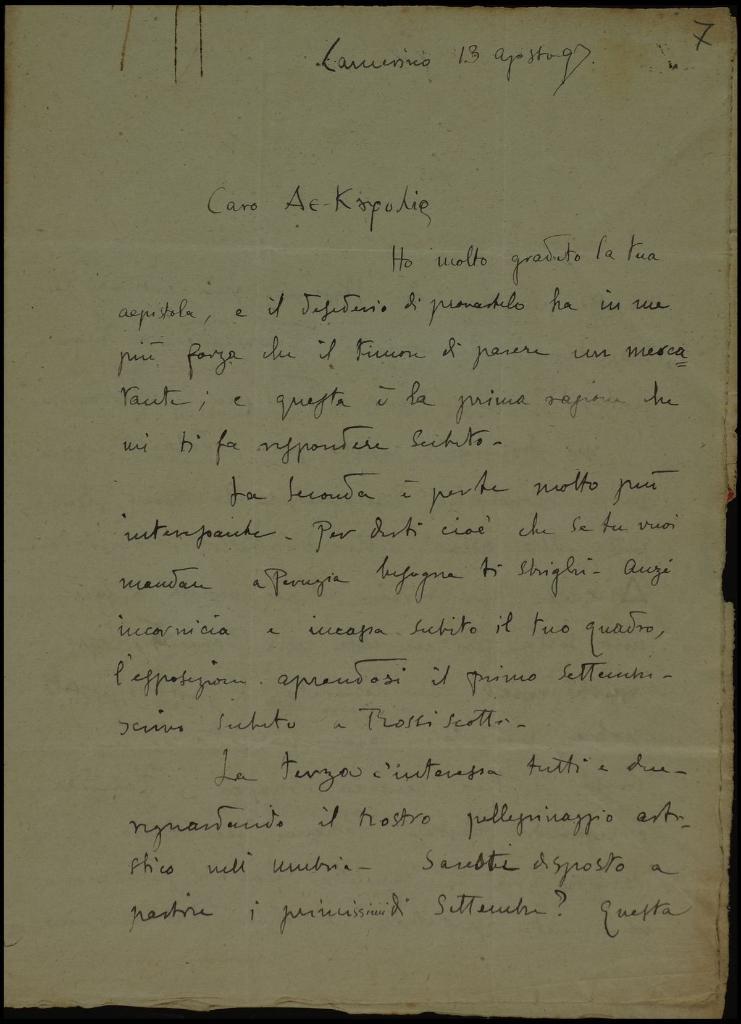 7
Camerino 13 agosto 97.
Caro Δε-Καρολις
Ho molto gradito la tua
aepistola, e il desiderio di provartelo ha in me
più forza che il timore di parere un merca
tante; e questa è la prima ragione che
mi ti fa rispondere subito-
La seconda è per te molto più
interessante - Per dirti cioè che se tu vuoi
mandare a Perugia bisogna ti sbrighi - anzi
incornicia e incassa subito il tuo quadro,
l'esposizione aprendosi il primo settembre -
scrivo subito a Rossi Scotti -
La terza c'interessa tutti e due -
riguardando il nostro pellegrinaggio arti-
stico nell'Umbria - Saresti disposto a
partire i primissimi di Settembre? Questa